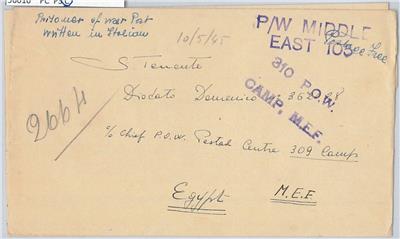 36610 PC PS C
Prisoner of war Post
written in Italian
10/5/45
P/W MIDDLE
EAST 103
Postage Free
S. Tenente
310 P.O.W.
CAMP, M.E.F.
Diodato Domenico
2664
c/o Chief P.O.W. Postal Centre 309 Camp
Egypt
M.E.F.